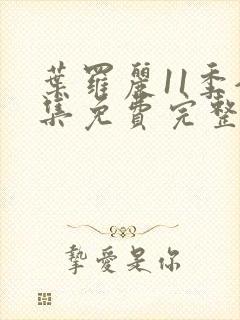 葉羅麗11季
集免費完整
摯愛是你